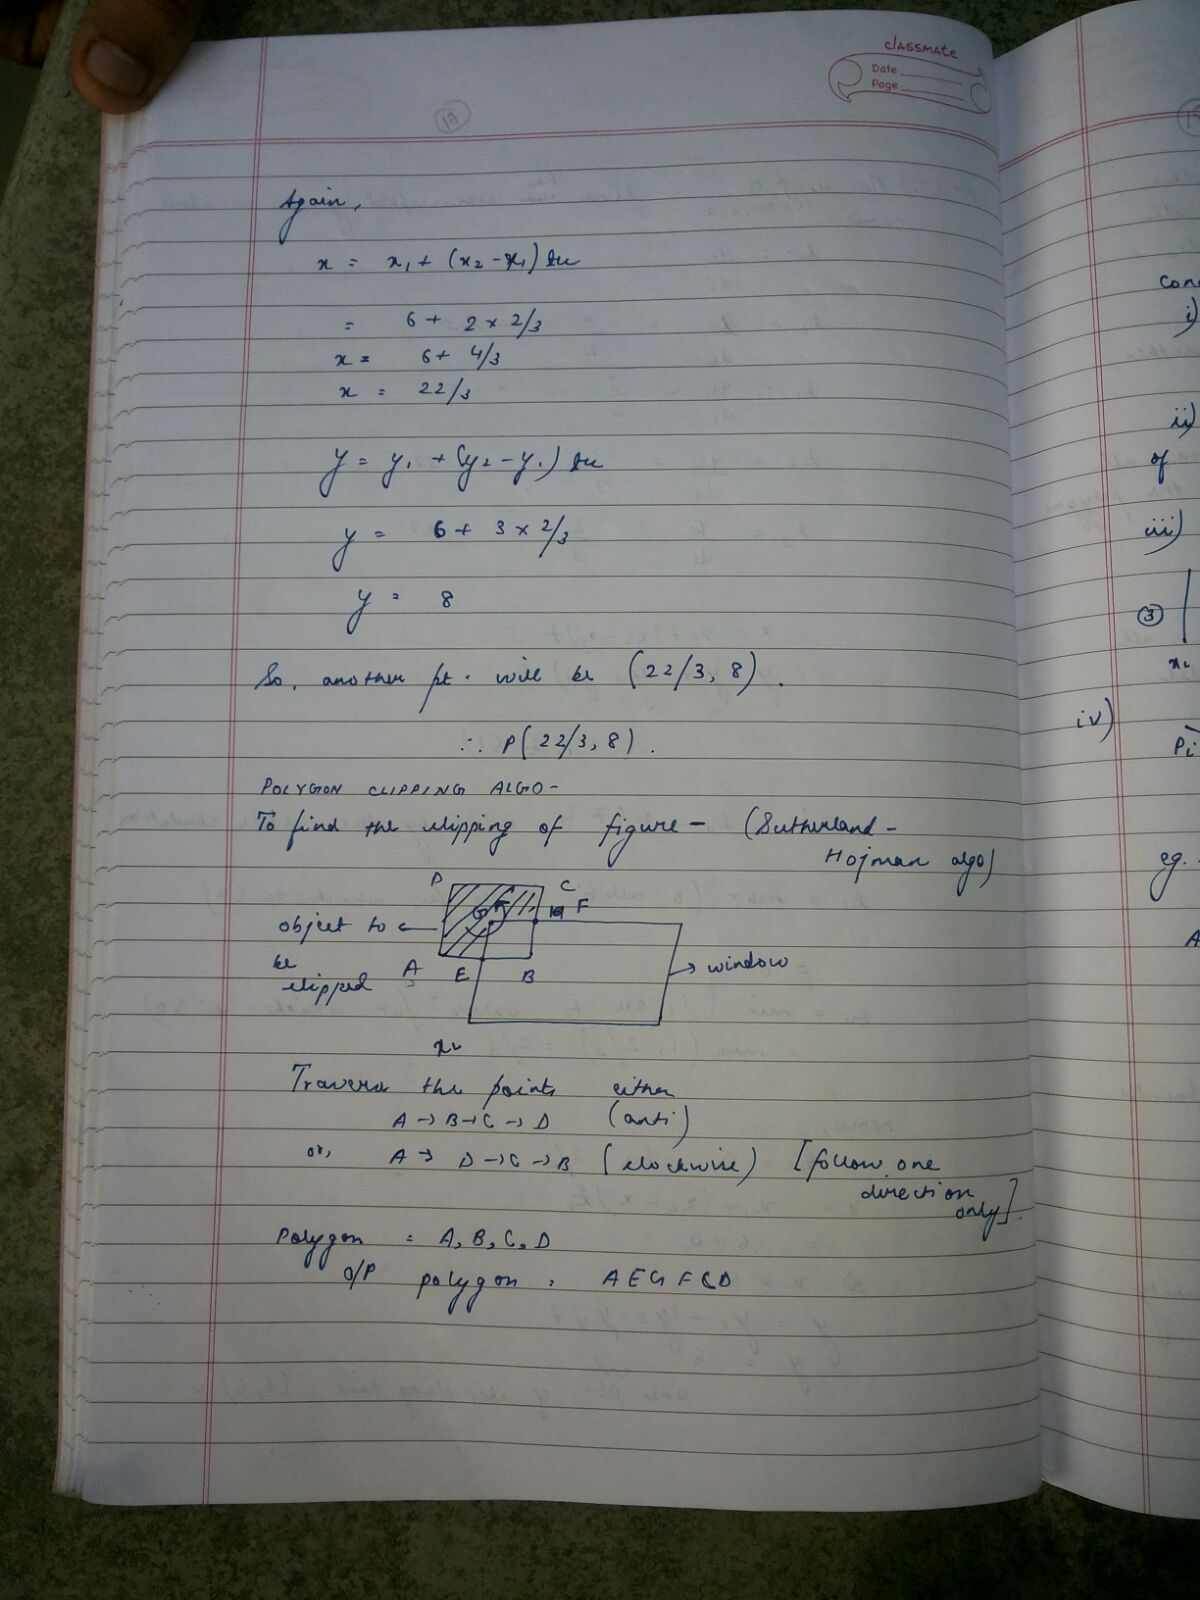 classmate
Date
Page
18
Again,
x = x₁ + (x₂ - x₁) tu
= 6 + 2 × 2/3
x = 6 + 4/3
x = 22/3
y = y₁ + (y₂ - y₁) tu
y = 6 + 3 × 2/3
y = 8
So, another pt. will be (22/3, 8).
∴ P(22/3, 8).
POLYGON CLIPPING ALGO-
To find the clipping of figure - (Sutherland-
Hojman algo)
D
C
G
F
object to
be
clipped
A
E
B
window
xL
Traverse the points either
A → B → C → D (anti)
or, A → D → C → B (clockwise) [follow one
direction
only].
Polygon = A, B, C, D
O/P polygon = A E G F C D
con
i)
ii)
of
iii)
③
xL
iv)
Pi
eg.
A